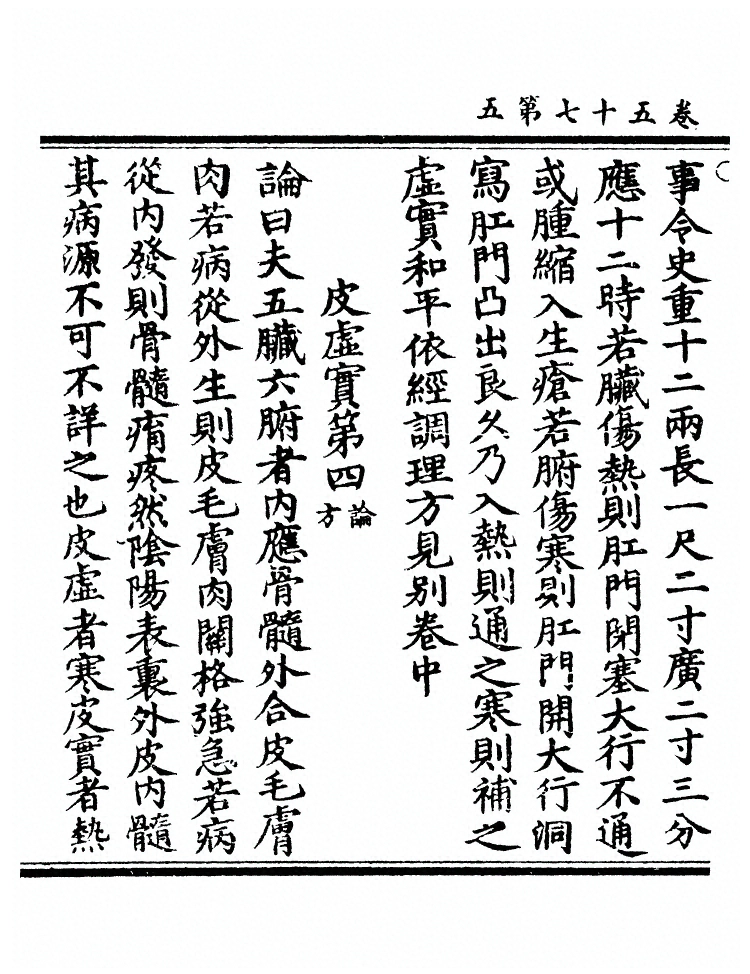 卷五十七第五
事令史重十二兩長一尺二寸廣二寸三分
應十二時若臟傷熱則肛門閉塞大行不通
或腫縮入生瘡若腑傷寒則肛門開大行洞
寫肛門凸出良久乃入熱則通之寒則補之
虛實和平依經調理方見別卷中
皮虛實第四論方
論曰夫五臟六腑者內應骨髓外合皮毛膚
肉若病從外生則皮毛膚肉關格強急若病
從內發則骨髓痟疼然陰陽表裏外皮內髓
其病源不可不詳之也皮虛者寒皮實者熱